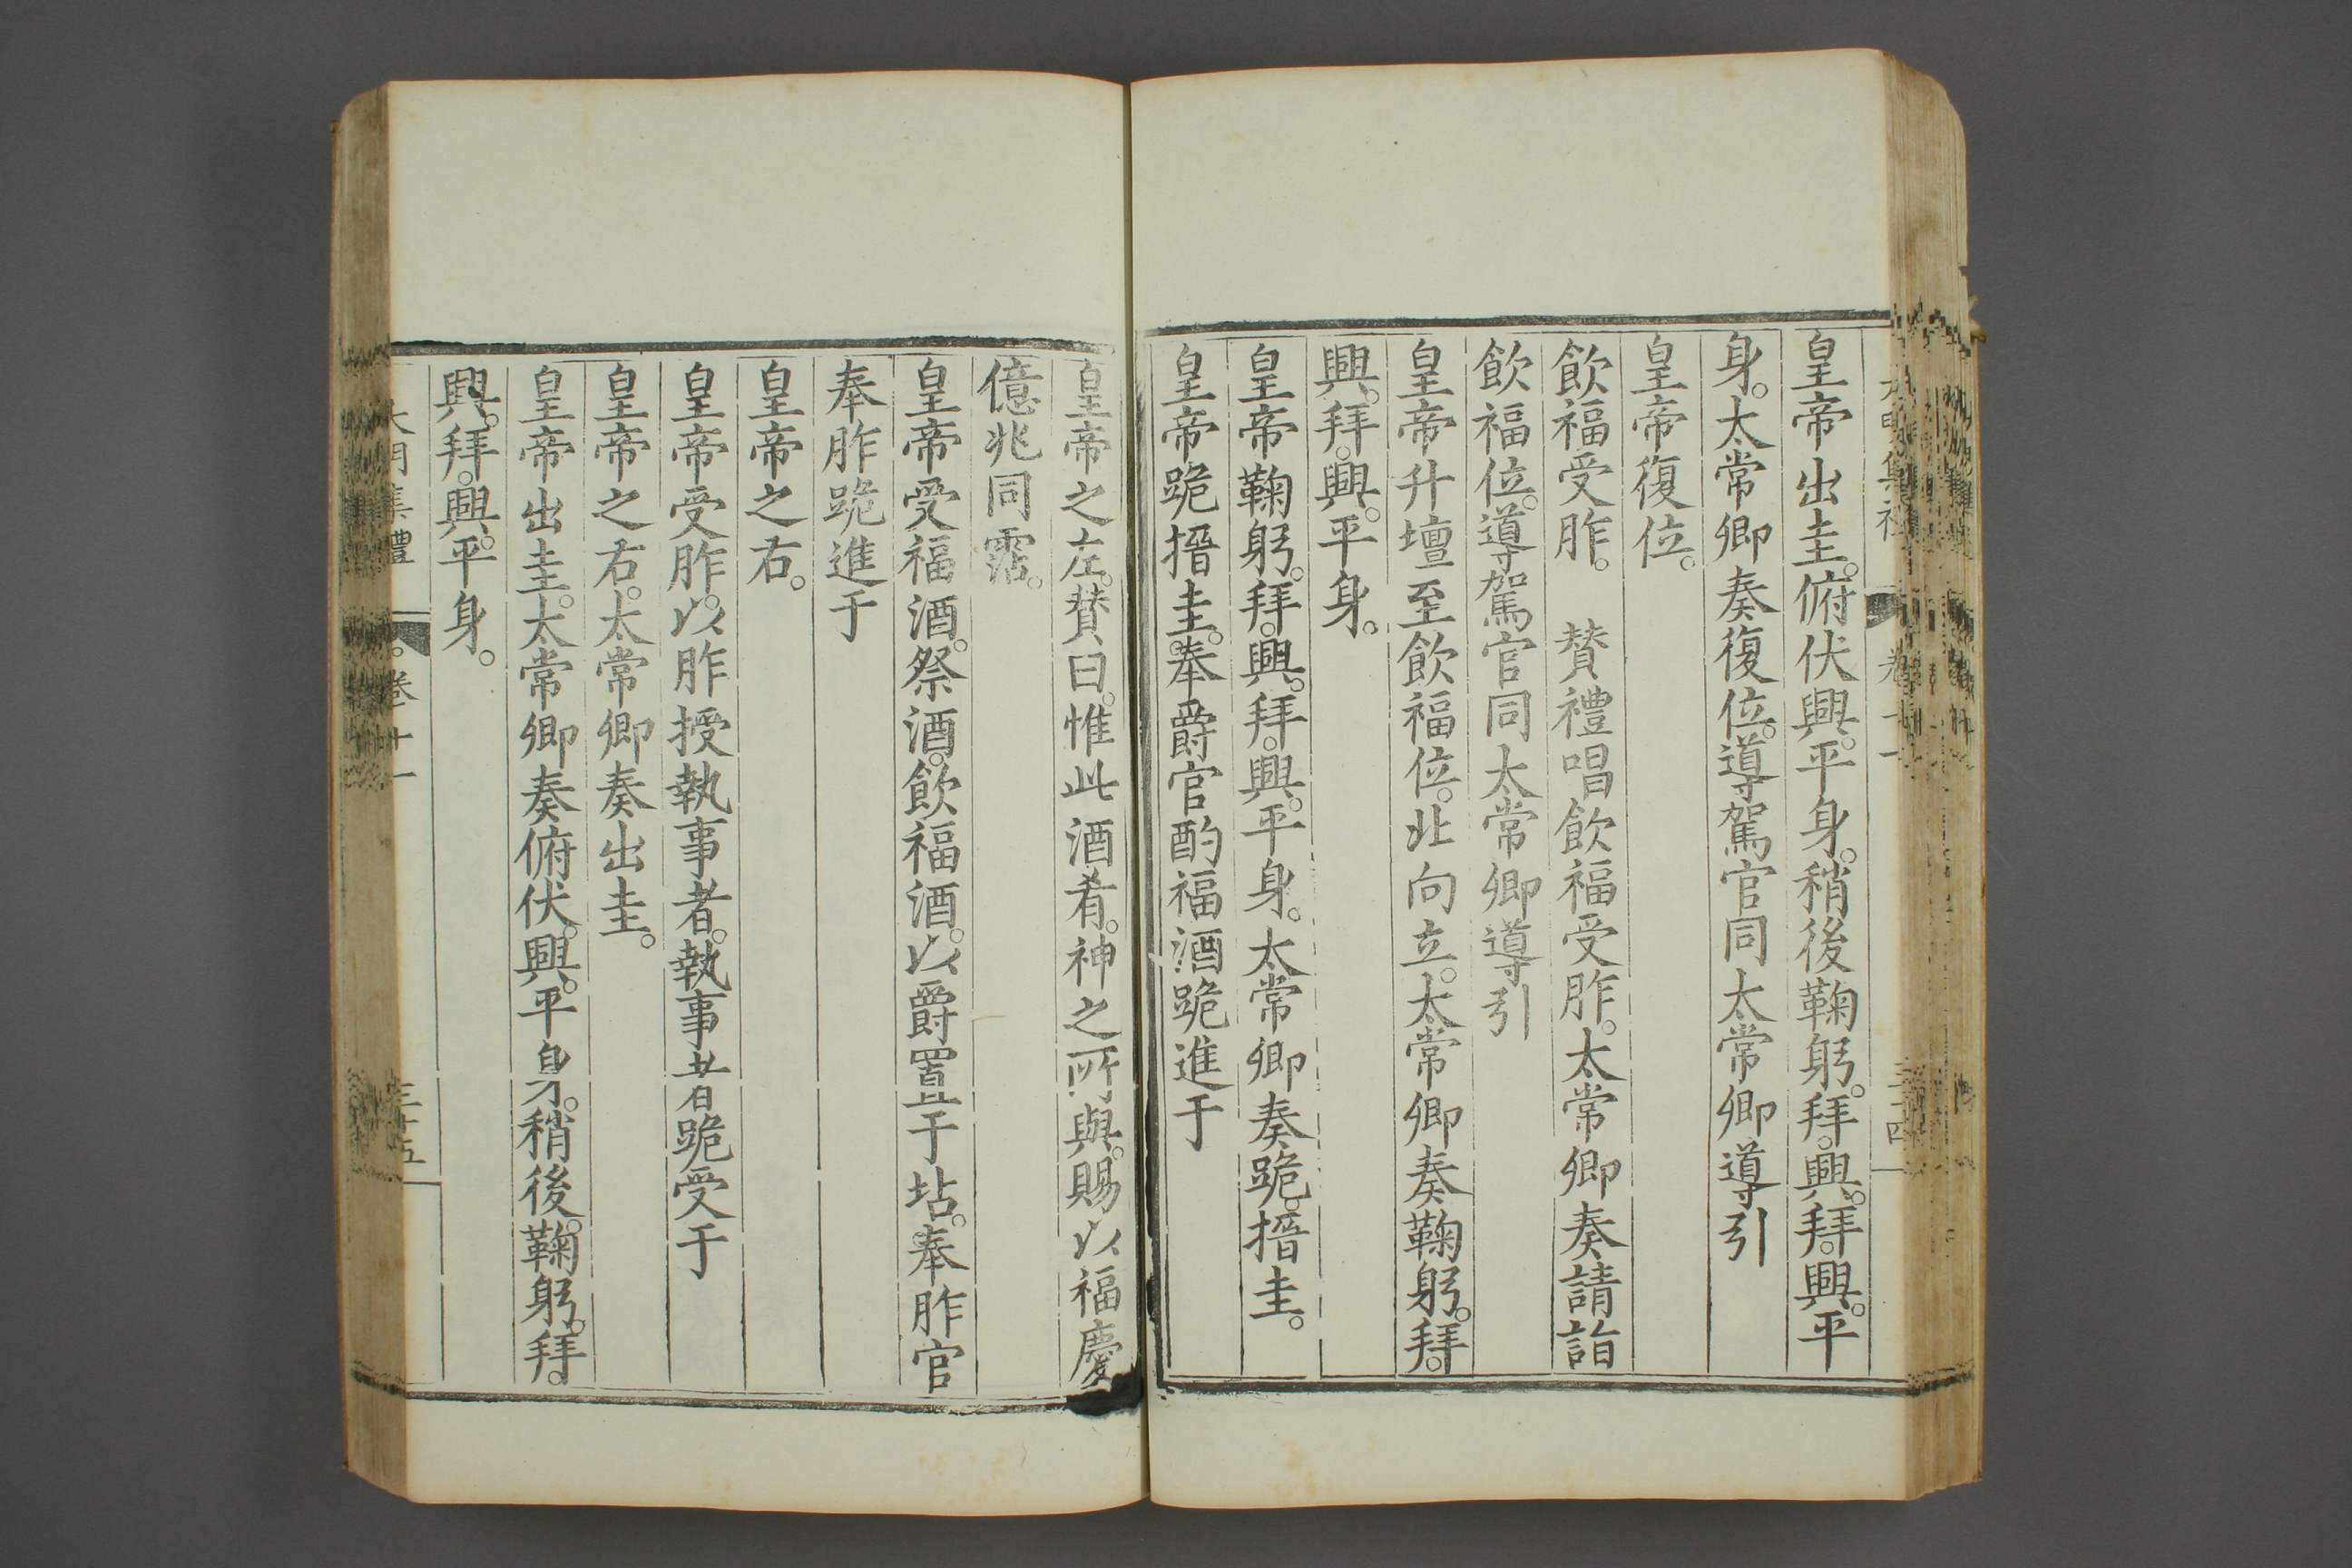 皇帝出圭。俯伏興。平身。稍後鞠躬。拜。興。拜。興。平
身。太常卿奏復位。導駕官同太常卿導引
皇帝復位。
飲福受胙。　賛禮唱飲福受胙。太常卿奏請詣
飲福位。導駕官同太常卿導引
皇帝升壇至飲福位。北向立。太常卿奏鞠躬。拜。
興。拜。興。平身。
皇帝鞠躬。拜。興。拜。興。平身。太常卿奏跪。搢圭。
皇帝跪搢圭。奉爵官酌福酒跪進于
皇帝之左。賛曰。惟此酒肴。神之所與。賜以福慶
億兆同霑。
皇帝受福酒。祭酒。飲福酒。以爵置于坫。奉胙官
奉胙跪進于
皇帝之右。
皇帝受胙。以胙授執事者。執事者跪受于
皇帝之右。太常卿奏出圭。
皇帝出圭。太常卿奏俯伏。興。平身。稍後。鞠躬。拜。
興。拜。興。平身。
大明集禮　卷十一　三十五